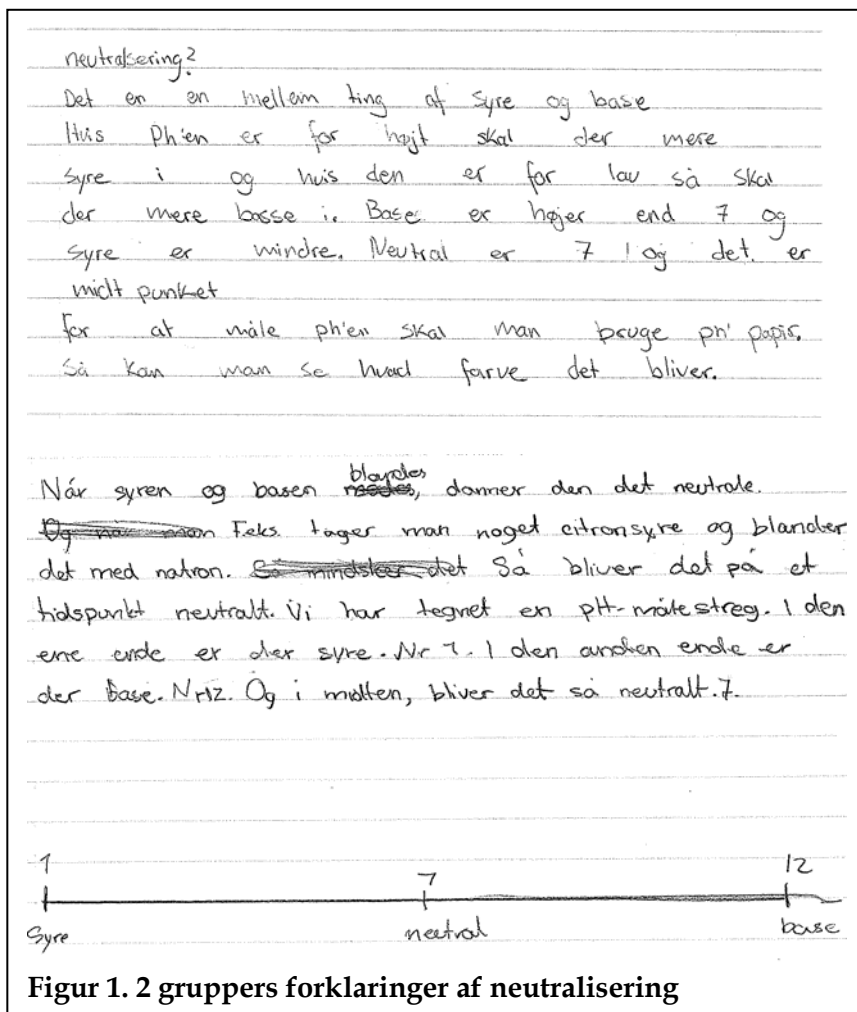 neutralsering?
Det er en mellem ting af syre og base
Hvis Ph'en er for højt skal der mere
syre i og hvis den er for lav så skal
der mere basse i. Base er højer end 7 og
syre er mindre. Neutral er 7 og det er
midt punket
for at måle ph'en skal man bruge ph' papir.
Så kan man se hvad farve det bliver.
Når syren og basen blandes, danner den det neutrale.
F.eks. tager man noget citronsyre og blander
det med natron. Så bliver det på et
tidspunkt neutralt. Vi har tegnet en pH-målestreg. I den
ene ende er der syre. Nr 1. I den anden ende er
der base. Nr 12. Og i midten, bliver det så neutralt. 7.
1 7 12
Syre neutral base
Figur 1. 2 gruppers forklaringer af neutralisering